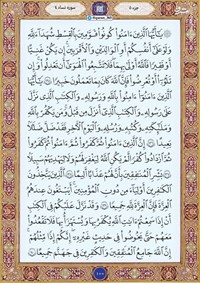 جزء ٥
سوره نساء ٤
يَٰٓأَيُّهَا ٱلَّذِينَ ءَامَنُوا۟ كُونُوا۟ قَوَّٰمِينَ بِٱلْقِسْطِ شُهَدَآءَ لِلَّهِ
وَلَوْ عَلَىٰٓ أَنفُسِكُمْ أَوِ ٱلْوَٰلِدَيْنِ وَٱلْأَقْرَبِينَ إِن يَكُنْ غَنِيًّا
أَوْ فَقِيرًا فَٱللَّهُ أَوْلَىٰ بِهِمَا فَلَا تَتَّبِعُوا۟ ٱلْهَوَىٰٓ أَن تَعْدِلُوا۟ وَإِن
تَلْوُۥٓا۟ أَوْ تُعْرِضُوا۟ فَإِنَّ ٱللَّهَ كَانَ بِمَا تَعْمَلُونَ خَبِيرًا
يَٰٓأَيُّهَا ٱلَّذِينَ ءَامَنُوٓا۟ ءَامِنُوا۟ بِٱللَّهِ وَرَسُولِهِۦ وَٱلْكِتَٰبِ ٱلَّذِى نَزَّلَ
عَلَىٰ رَسُولِهِۦ وَٱلْكِتَٰبِ ٱلَّذِىٓ أَنزَلَ مِن قَبْلُ وَمَن يَكْفُرْ بِٱللَّهِ
وَمَلَٰٓئِكَتِهِۦ وَكُتُبِهِۦ وَرُسُلِهِۦ وَٱلْيَوْمِ ٱلْءَاخِرِ فَقَدْ ضَلَّ ضَلَٰلًۢا
بَعِيدًا إِنَّ ٱلَّذِينَ ءَامَنُوا۟ ثُمَّ كَفَرُوا۟ ثُمَّ ءَامَنُوا۟ ثُمَّ كَفَرُوا۟
ثُمَّ ٱزْدَادُوا۟ كُفْرًا لَّمْ يَكُنِ ٱللَّهُ لِيَغْفِرَ لَهُمْ وَلَا لِيَهْدِيَهُمْ سَبِيلًۢا
بَشِّرِ ٱلْمُنَٰفِقِينَ بِأَنَّ لَهُمْ عَذَابًا أَلِيمًا ٱلَّذِينَ يَتَّخِذُونَ
ٱلْكَٰفِرِينَ أَوْلِيَآءَ مِن دُونِ ٱلْمُؤْمِنِينَ أَيَبْتَغُونَ عِندَهُمُ
ٱلْعِزَّةَ فَإِنَّ ٱلْعِزَّةَ لِلَّهِ جَمِيعًا وَقَدْ نَزَّلَ عَلَيْكُمْ فِى ٱلْكِتَٰبِ
أَنْ إِذَا سَمِعْتُمْ ءَايَٰتِ ٱللَّهِ يُكْفَرُ بِهَا وَيُسْتَهْزَأُ بِهَا فَلَا تَقْعُدُوا۟
مَعَهُمْ حَتَّىٰ يَخُوضُوا۟ فِى حَدِيثٍ غَيْرِهِۦٓ إِنَّكُمْ إِذًا مِّثْلُهُمْ
إِنَّ ٱللَّهَ جَامِعُ ٱلْمُنَٰفِقِينَ وَٱلْكَٰفِرِينَ فِى جَهَنَّمَ جَمِيعًا
١٠٠